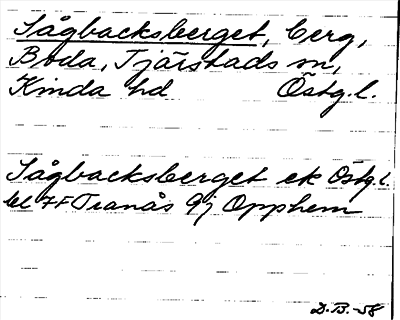 Sågbacksberget, berg,
Boda, Tjärstads sn,
Kinda hd Östg.l.
Sågbacksberget ek Östg.l.
bl 7F Tranås 9j Opphem
D.B.-58